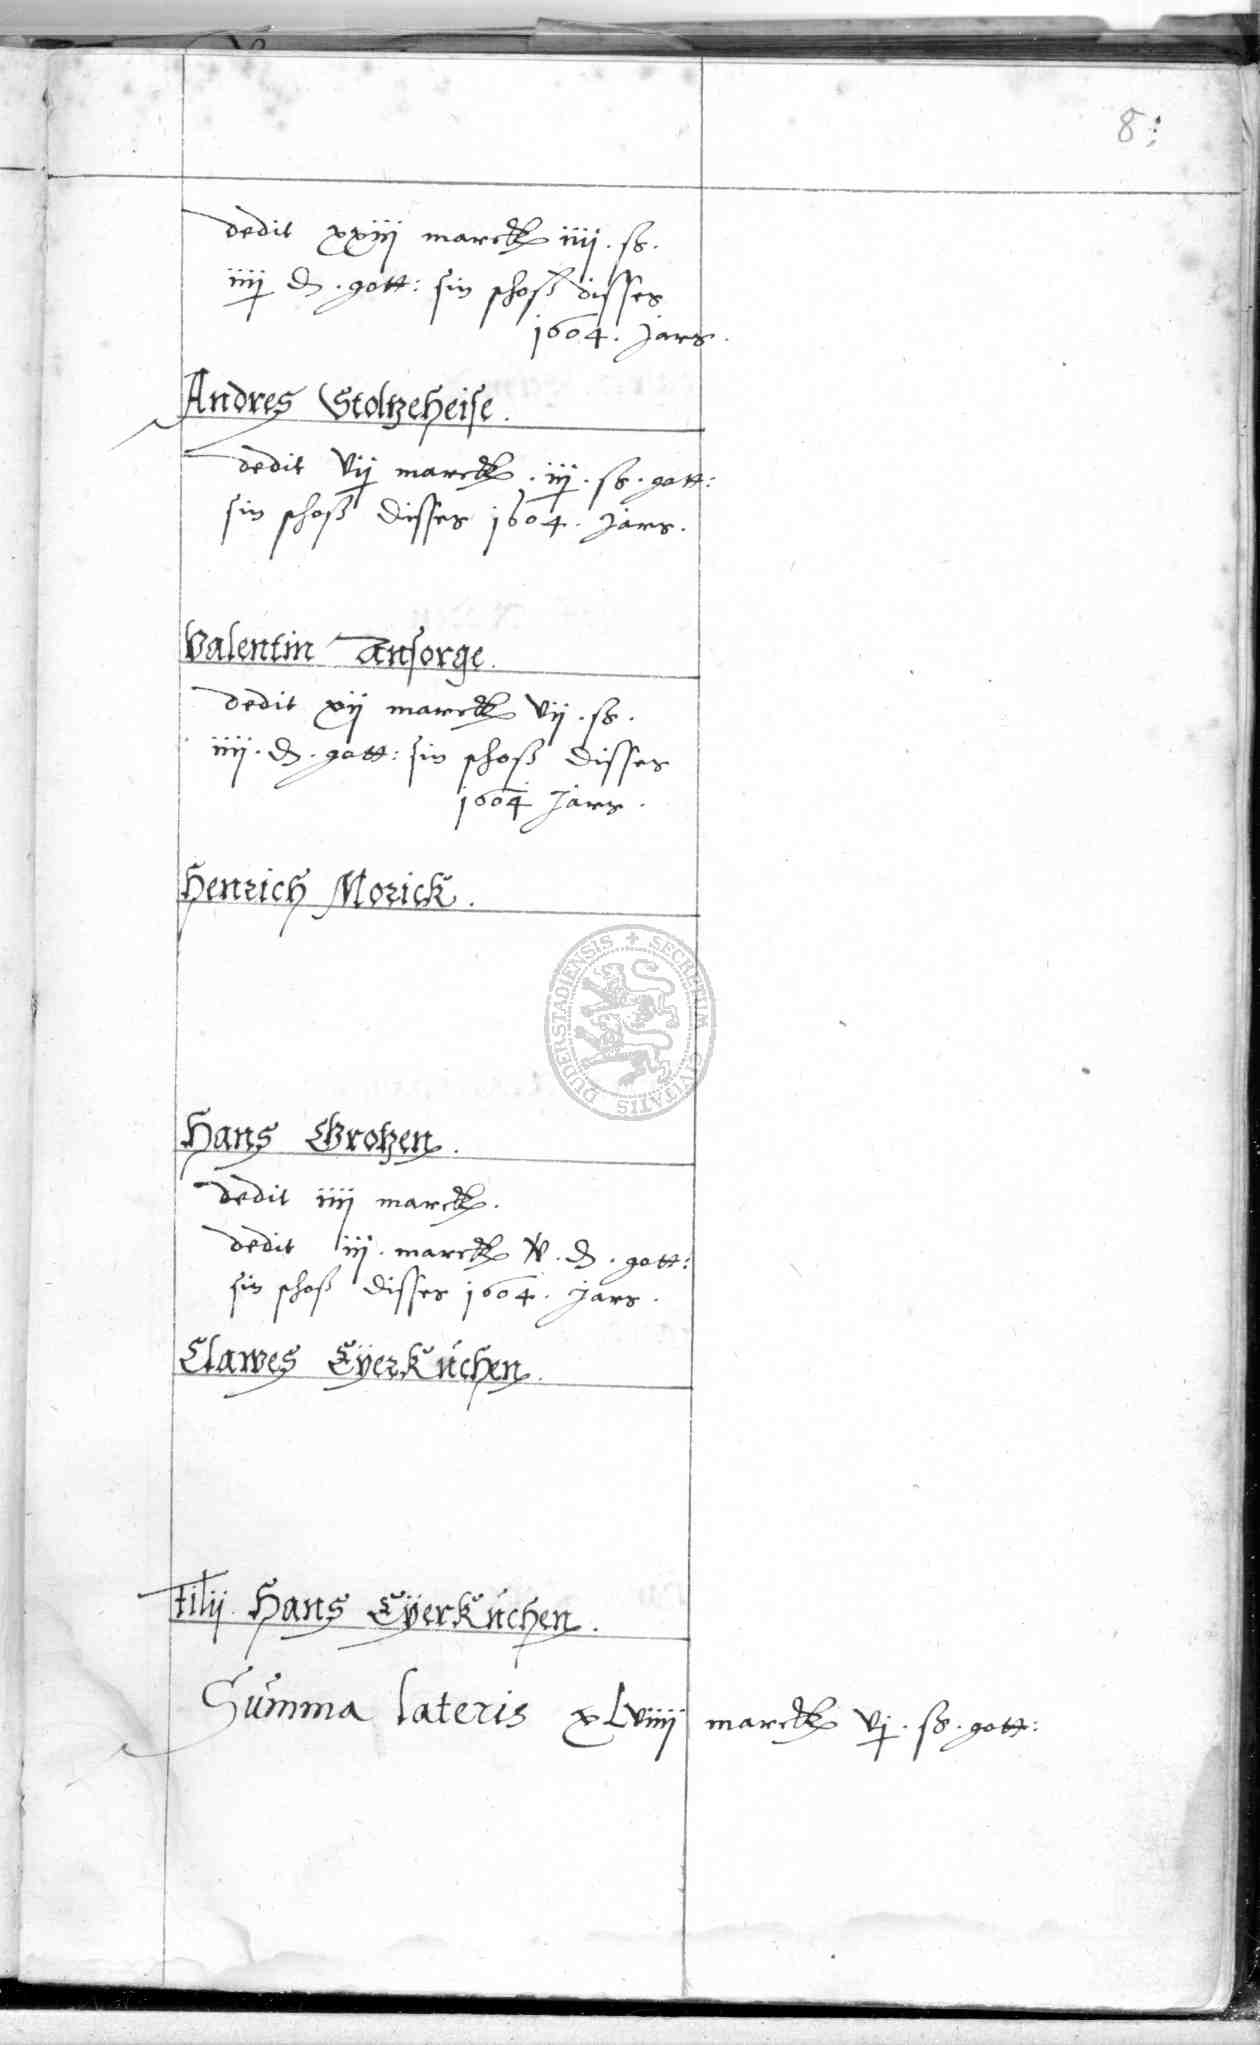 8
dedit xxiij marck iiij. ß.
iiij ₰. gott: sin schoß disses
1604. Jars.
Andres Stoltzeheise.
dedit vij marck. iij. ß. gott:
sin schoß disses 1604. Jars.
Valentin Ansorge.
dedit xij marck vij. ß.
iiij. ₰. gott: sin schoß disses
1604 Jars.
Henrich Morick.
DUDERSTADIENSIS + SECRETUM CIVITATIS
Hans Grotzen.
dedit iiij marck.
dedit iij. marck v. ₰. gott:
sin schoß disses 1604. Jars.
Clawes Eÿerkuchen.
filij Hans Eÿerkuchen.
Summa lateris xLviiij marck vj. ß. gott: